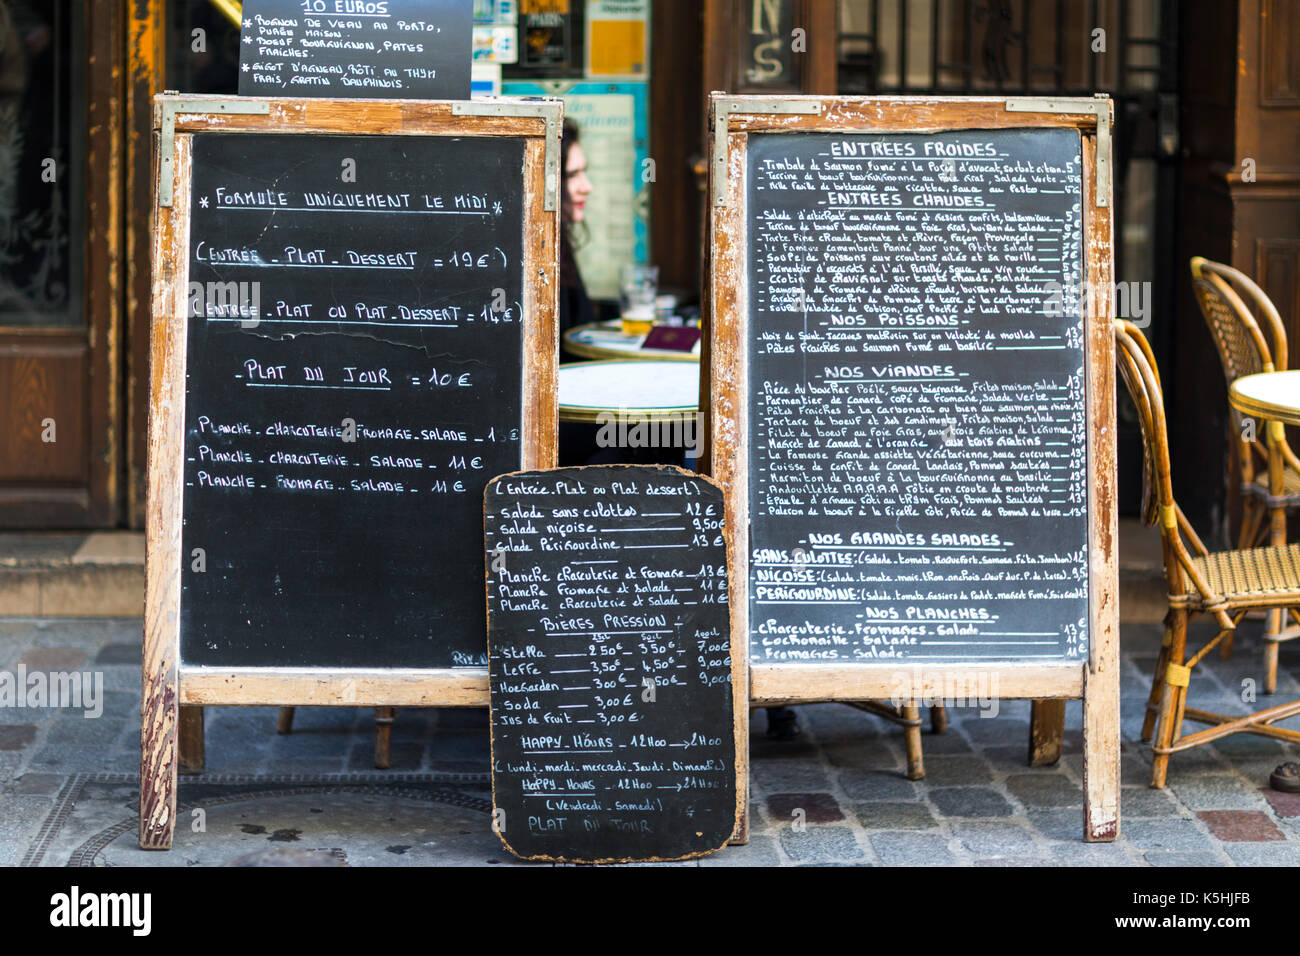 10 EUROS
* ROGNON DE VEAU AU PORTO,
PURÉE MAISON.
* BOEUF BOURGUIGNON, PATES
FRAICHES.
* GIGOT D'AGNEAU, RÔTI AU THYM
FRAIS, GRATIN DAUPHINOIS.
* FORMULE UNIQUEMENT LE MIDI *
(ENTRÉE - PLAT - DESSERT = 19€
(ENTRÉE - PLAT OU PLAT - DESSERT = 14€)
- PLAT DU JOUR = 10€
- PLANCHE - CHARCUTERIE FROMAGE - SALADE - 13€
- PLANCHE - CHARCUTERIE - SALADE - 11€
- PLANCHE - FROMAGE - SALADE - 11€
(Entrée. Plat ou Plat dessert)
Salade sans culottes 12€
Salade niçoise 9,50€
Salade Périgourdine 13€
Planche charcuterie et fromage 13€
Planche fromage et salade 11€
Planche charcuterie et Salade 11€
BIÈRES PRESSION
25cl 50cl 100cl
Stella 2,50€ 3,50€ 7,00€
Leffe 3,50€ 4,50€ 9,00€
Hoegarden 3,00€ 4,50€ 9,00€
Soda 3,00€
Jus de fruit 3,00€
HAPPY - HOURS - 12H00 → 2H00
(Lundi. mardi. mercredi. Jeudi. Dimanche)
HAPPY - HOURS 12H00 → 21H00
(Vendredi - Samedi)
PLAT DU JOUR
NS
- ENTREES FROIDES -
- Timbale de Saumon Fumé à la Purée d'avocat, sorbet citron 5€
- Terrine de boeuf bourguignonne au Foie Gras, Salade Verte 5€
- Mille feuille de betterave au ricotta, sauce au Pesto 5€
- ENTREES CHAUDES -
- Salade d'artichaut au magret Fumé et Gésiers confits, balsamique 5
- Terrine de boeuf bourguignonne au Foie Gras, buisson de Salade
- Tarte Fine chaude, tomate et chèvre, Façon Provençale
- Le Fameux camembert Panné Sur une Petite Salade
- Soupe de Poissons aux croutons ailés et sa rouille
- Parmentier d'escargots à l'ail Persillé, sauce au Vin rouge
- Crotin de chavignol sur toasts chauds, Salade
- fromage de chèvre chaud, buisson de Salade
- Gratin de Pommes de terre à la carbonara
- Velouté de Potiron, Oeuf Poché et Lard Fumé
- NOS POISSONS -
- Noix de Saint-Jacques sur un Velouté de moules 13€
- Pâtes Fraiches au Saumon Fumé au basilic 13€
- NOS VIANDES -
- Pièce du boucher Poélé, sauce béarnaise, Frites maison, Salade 13€
- Parmentier de Canard, rapé de Fromage, Salade Verte 13€
- Pâtes Fraiches à la Carbonara ou bien au Saumon, au choix 13€
- Tartare de boeuf et ses Condiments, Frites maison, Salade
- Filet de boeuf au Foie Gras, aux trois Gratins de Légumes
- Magret de Canard à l'orange, aux trois Gratins 13€
- La Fameuse Grande assiette Végétarienne, sauce curcuma
- Cuisse de confit de Canard Landais, Pommes Sautées 13€
- Marmiton de boeuf à la bourguignonne au basilic 13€
- Andouillette A.A.A.A.A rôtie en croute de moutarde 13€
- Epaule d'agneau rôti au thym Frais, Pommes Sautées 13€
- Paleron de boeuf à la Ficelle rôti, Purée de Pommes de terre 13€
- NOS GRANDES SALADES -
SANS-CULOTTES: (Salade. tomate. Roquefort. Samosa. Féta. Jambon) 12€
- NIÇOISE: (Salade. tomate. maïs. thon. anchois. Oeuf dur. P. de terre) 9,5
- PERIGOURDINE: (Salade. tomate. Gesiers de Poulet. magret Fumé 13€
- NOS PLANCHES -
- Charcuterie - Fromages - Salade 13€
- Cochonaille - Salade 11€
- Fromages - Salade 11€
alamy
Image ID: K5HJFB
www.alamy.com